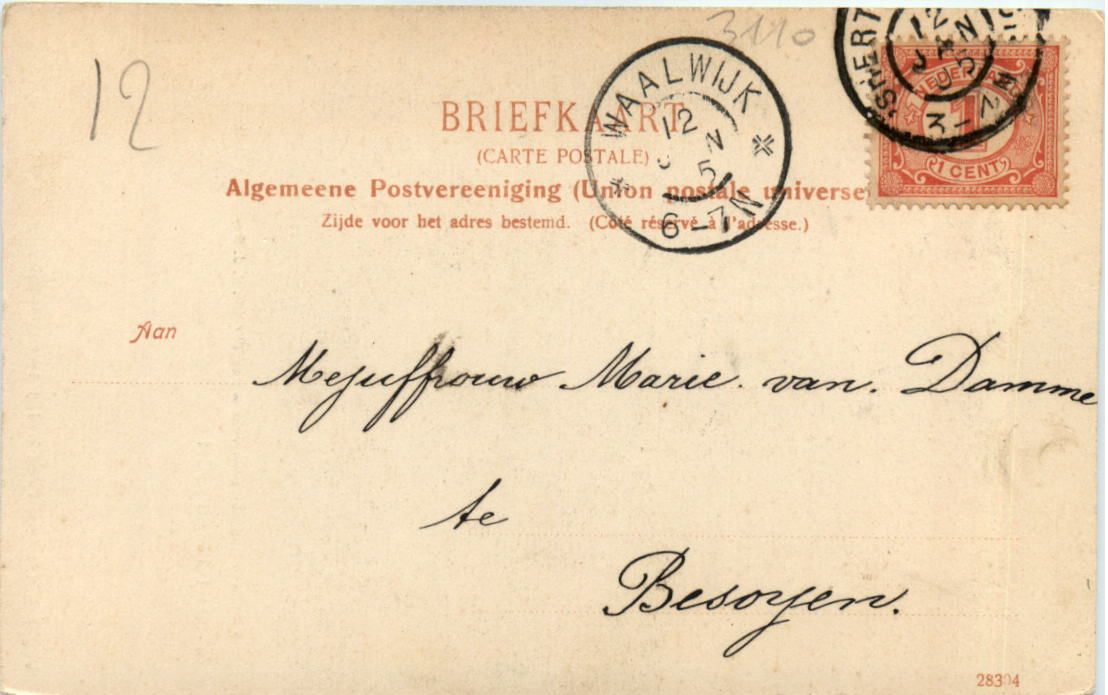 3110
12
BRIEFKAART
(CARTE POSTALE)
Algemeene Postvereeniging (Union postale universe
Zijde voor het adres bestemd. (Côté réservé à l'adresse.)
WAALWIJK
12
5
6-7N
12
JAN
05
3-
NEDERLAND
1
1 CENT
Aan
Mejuffrouw Marie. van. Damme
te
Besoyen.